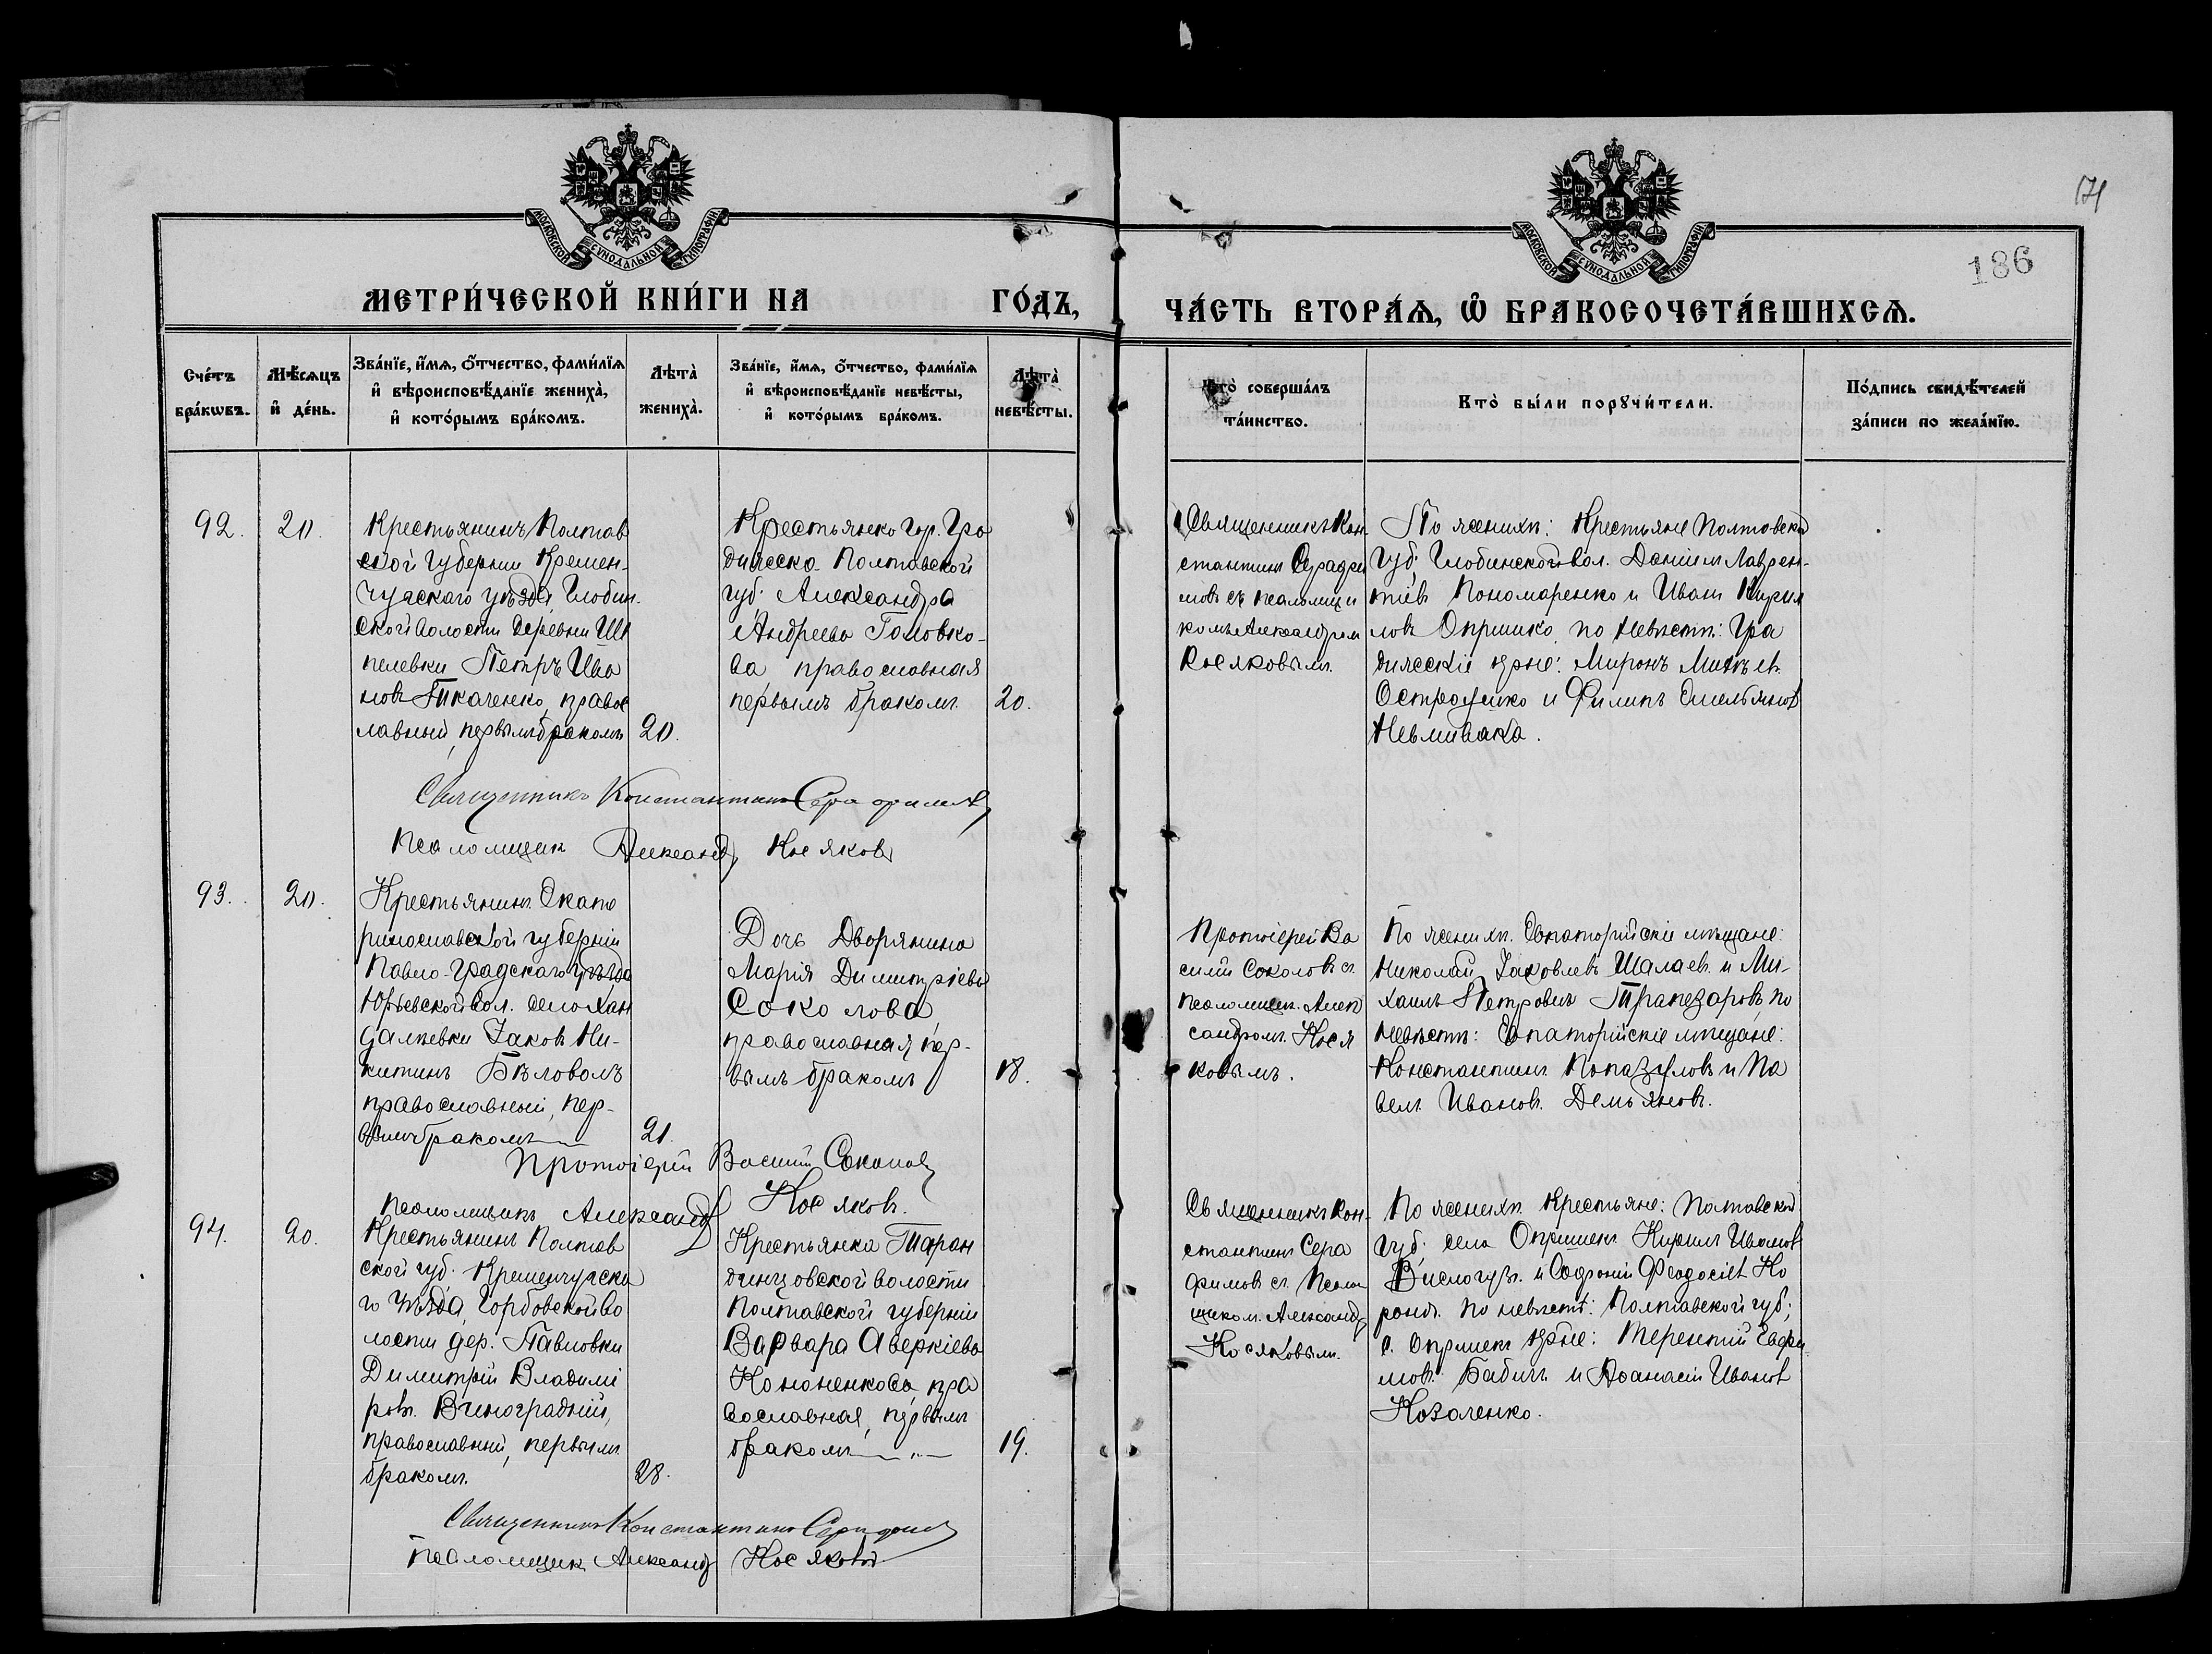 МОСКОВСКОЙ СѴНОДАЛЬНОЙ ТИПОГРАФІИ
МОСКОВСКОЙ СѴНОДАЛЬНОЙ ТИПОГРАФІИ
186
МЕТРИ́ЧЕСКОЙ КНИ́ГИ НА ГО́ДЪ,
ЧА́СТЬ ВТОРА́Ѧ, Ѽ БРАКОСОЧЕТА́ВШИХСѦ.
Сче́тъ бра́кѡвъ.
Мѣ́сѧцъ и҆ де́нь.
Зва́нїе, и҆́мѧ, ѻ҆́тчество, фами́лїѧ
и҆ вѣроисповѣ́данїе жениха̀,
и҆ кото́рымъ бра́комъ.
Лѣта̀ жениха̀.
Зва́нїе, и҆́мѧ, ѻ҆́тчество, фами́лїѧ
и҆ вѣроисповѣ́данїе невѣ́сты,
и҆ кото́рымъ бра́комъ.
Лѣта̀ невѣ́сты.
Кто̀ соверша́лъ та́инство.
Кто̀ бы́ли порꙋчи́тели.
По́дпись свидѣ́телей
за́писи по жела́нїю.
92.
20.
Крестьянинъ Полтав
ской губерніи Кремен-
чугскаго уѣзда, Глобин-
ской волости деревни Ше
пелевки Петръ Ива
новъ Ткаченко, правос
лавный, первымъ бракомъ
20.
Крестьянка гор. Гра
дижска Полтавской
губ. Александра
Андреева Головко-
ва, православная
первымъ бракомъ
20.
Священникъ Кон-
стантинъ Серафи
мовъ съ псаломщи
комъ Александром
Косяковымъ.
По женихѣ: Крестьяне Полтавской
губ. Глобинской вол. Даніилъ Лаврен-
тіевъ Пономаренко и Иванъ Кирил
ловъ Опришко, по невѣстѣ: Гра
дижскіе кр-не: Миронъ
и Филипъ Емельянов
20.
Священникъ Константинъ Серафимовъ
Псаломщикъ Александръ Косяковъ
93.
20.
Крестьянинъ Екате
ринославской губерніи
Павло-Градскаго уѣзда
Юрьевской вол. село
Яковъ Ни-
китинъ Бѣловолъ
православный, пер-
вымъ бракомъ
21.
Дочь Дворянина
Марія Димитріева
Соколова,
православная, пер-
вымъ бракомъ
18.
Протоіерей Ва
силій Соколовъ съ
псаломщик. Алек
сандромъ Кося
ковымъ.
По женихѣ. Евпаторійскіе мѣщане:
Николай Яковлевъ Шалаевъ и Ми-
хаилъ Петровичъ Трапезаровъ, по
невѣстѣ: Евпаторійскіе мѣщане:
Константинъ и Па
велъ Ивановъ Демьяновъ.
Протоіерей Василій Соколовъ
Псаломщикъ Александръ Косяковъ.
94.
20.
Крестьянинъ Полтав
ской губ. Кременчугска
го уѣзда, Горбовской во
лости дер. Павловки
Димитрій Владимі
ровъ Виноградній,
православный, первымъ
бракомъ.
28.
Крестьянка Таран
динцовской волости
Полтавской губерніи
Варвара Аверкіева
Кононенкова, пра
вославная, первымъ
бракомъ
19.
Священникъ Кон-
стантинъ Сера
фимовъ съ Псалом
щиком. Александр
Косяковым.
По женихѣ Крестьяне: Полтавской
губ. села Опришекъ Кирилъ Ивановъ
и Софроній Феодосіев Ко
по невѣстѣ: Полтавской губ.;
с. Опришекъ кр-не: Терентій Евфи
мовъ Бабичъ и Афанасій Иванов
Козаленко.
Священникъ Константинъ Серафимовъ
Псаломщикъ Александръ Косяковъ